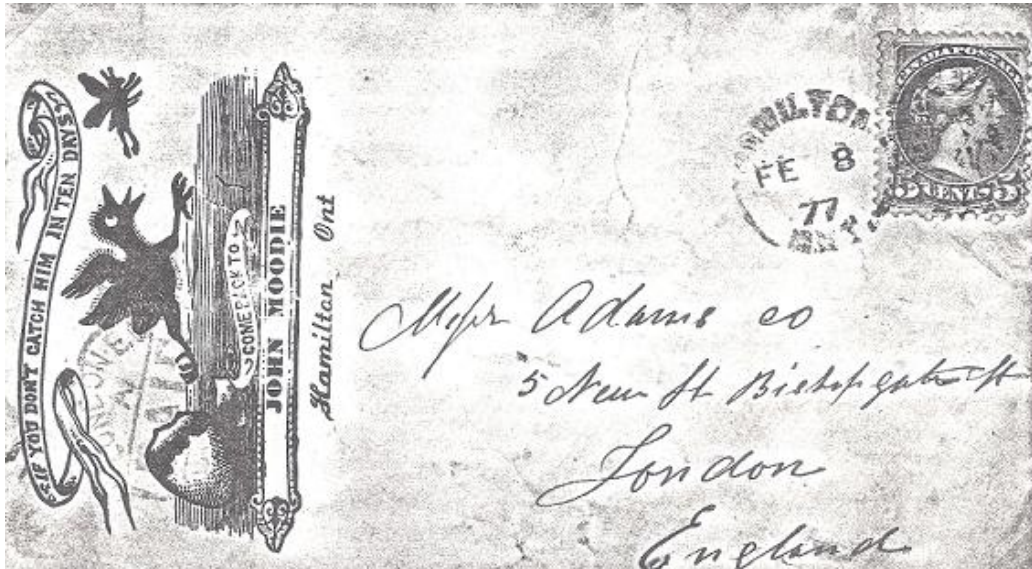 IF YOU DON'T CATCH HIM IN TEN DAYS
COME BACK TO
JOHN MOODIE
Hamilton Ont
HAMILTON
FE 8
77
ONT.
CANADA POSTAGE
5 CENTS 5
Messr Adams co
5 New St Bishopgate St
London
England
LONDON E